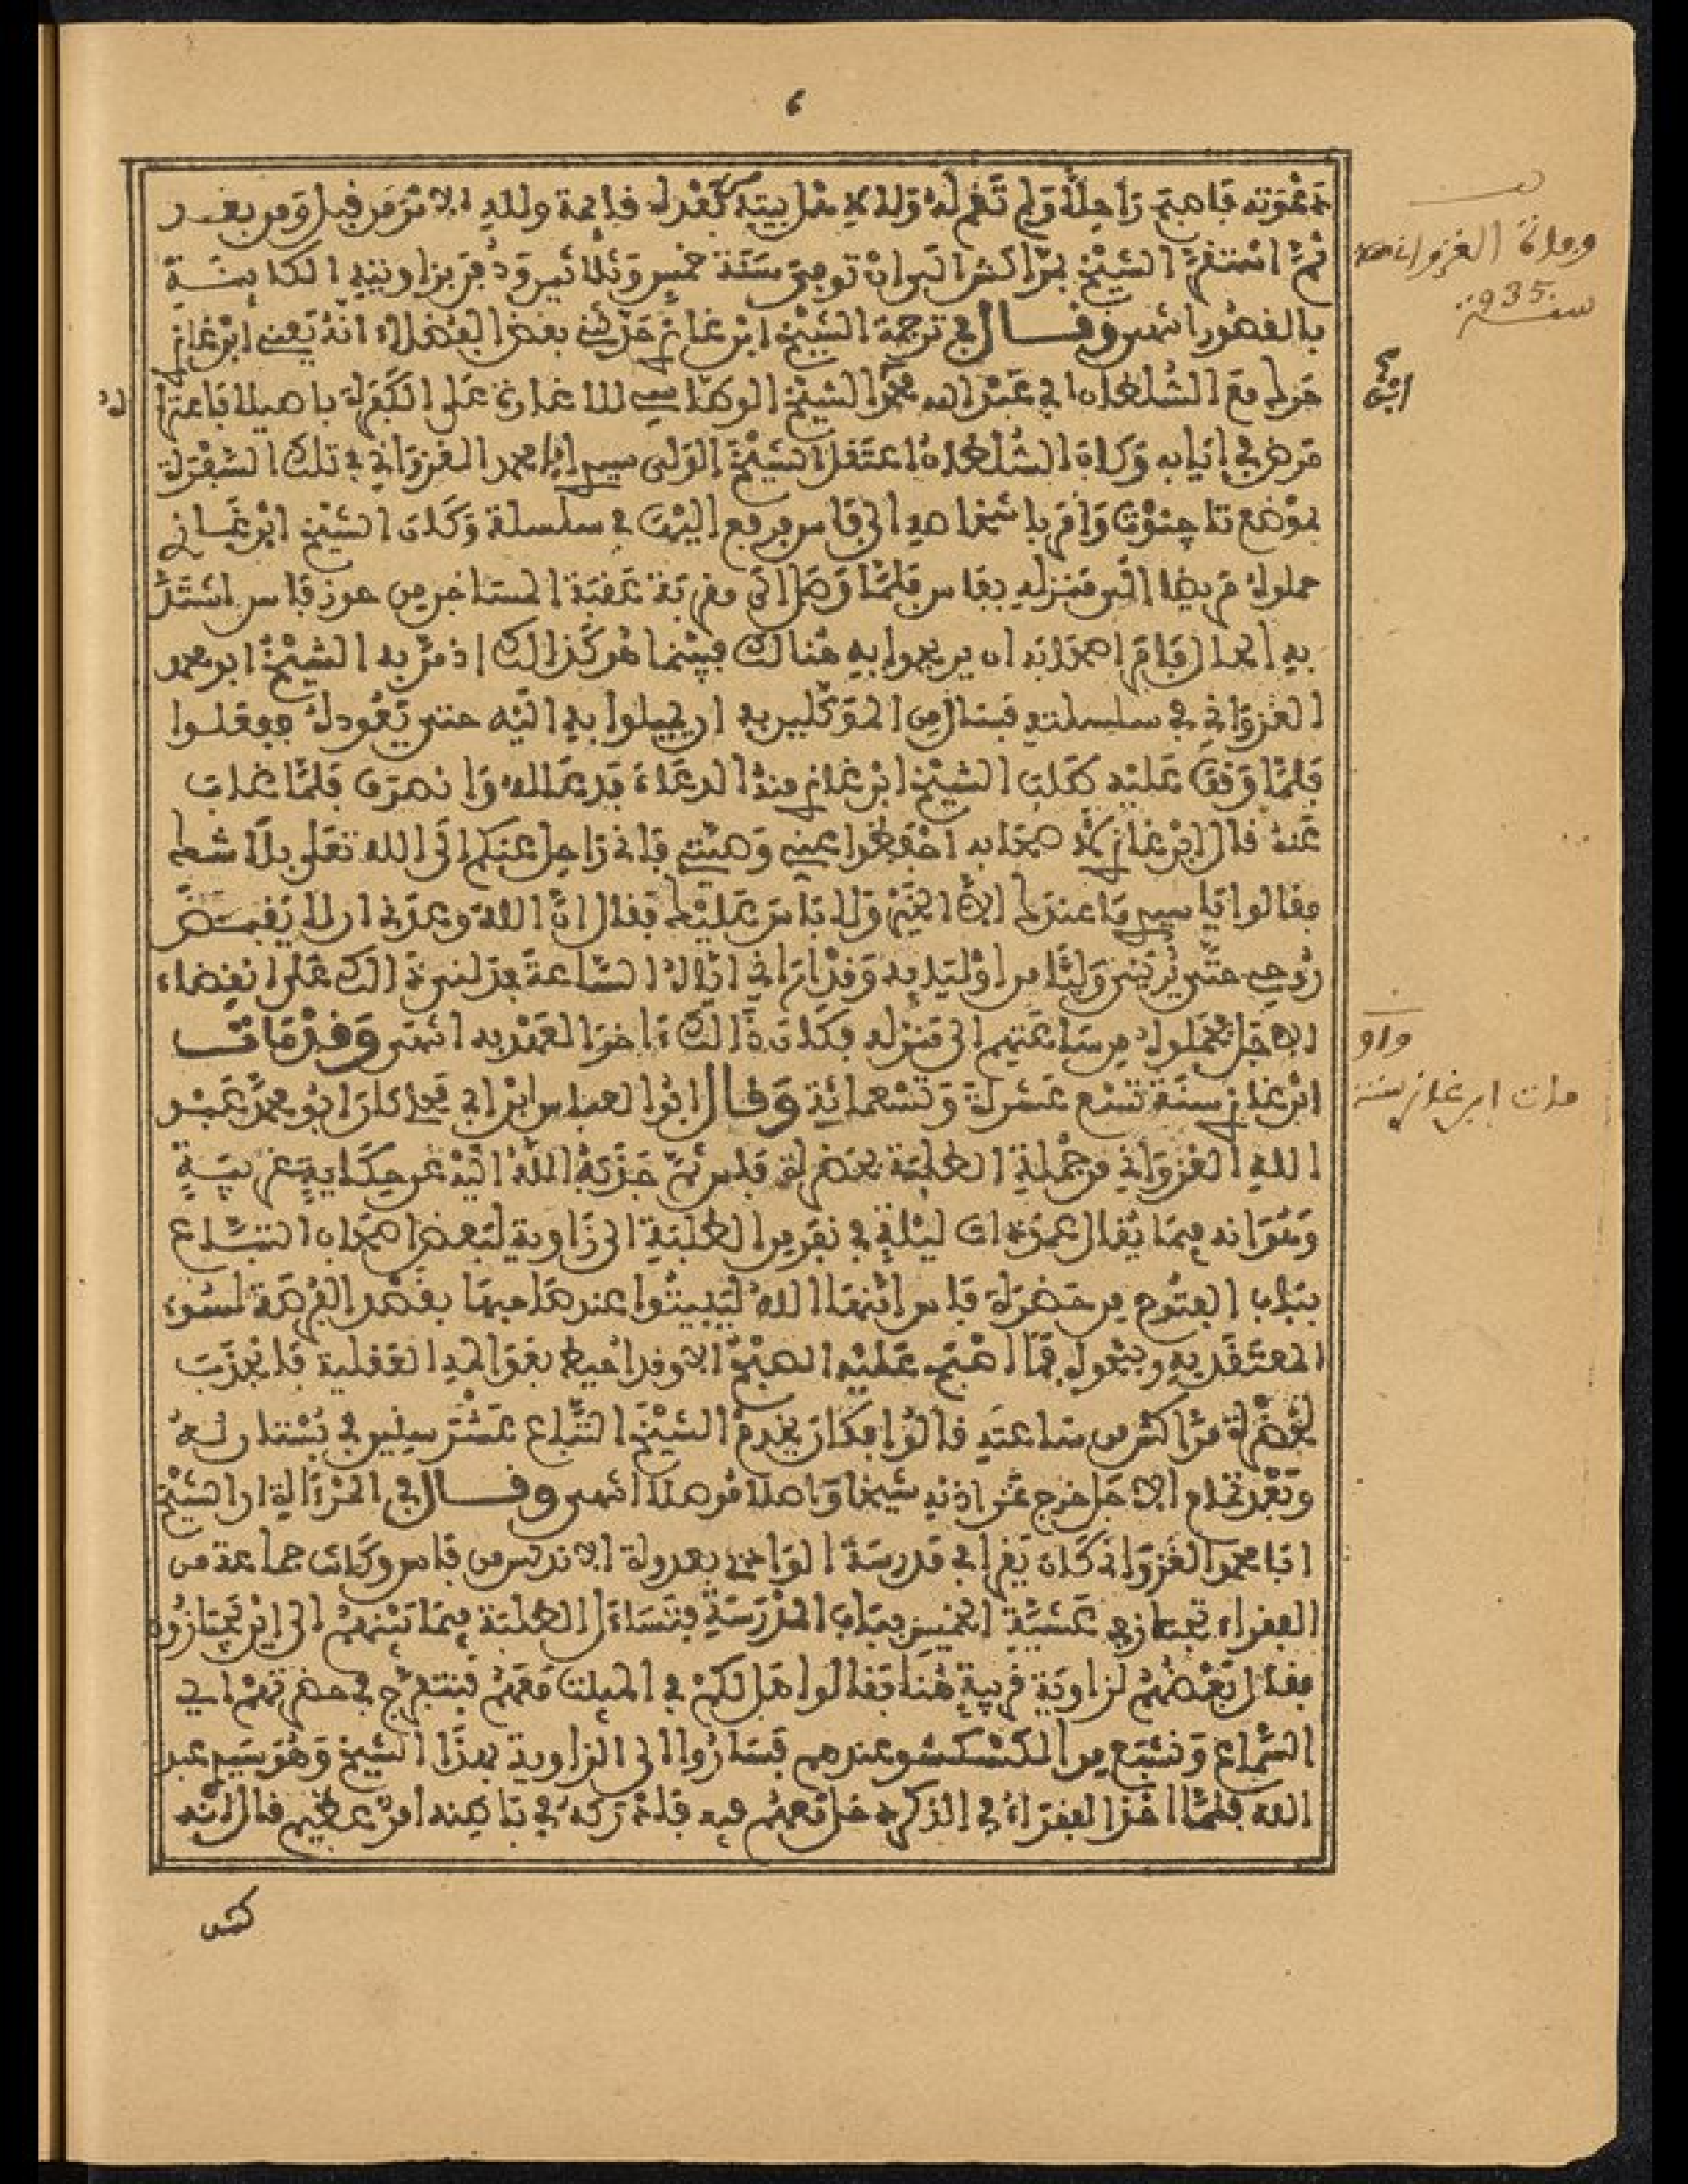 ٦
دعوته فاصبح راحلا ولم تقم له ولا لأهل بيته بعدك قايمة ولله الأمر من قبل ومن بعد
ثم استقر الشيخ بمراكش الى ان توفي سنة خمس وثلاثين ودفن بزاويته الكاينة
بالقصور انتهى وقال في ترجمة الشيخ ابن غازي حدثني بعض الفضلاء انه يعني ابن غازي
خرج مع السلطان ابي عبد الله محمد الشيخ الوطاسي للاغارة على الكفرة باصيلا فاعتراه
مرض في ايابه وكان السلطان اعتقل الشيخ الولي سيدي ابا محمد الغزواني في تلك السفرة
بموضع تاجنوت وامر باشخاصه الى فاس مرفع اليت في سلسلة وكان الشيخ ابن غازي
حملوه مريضا الى منزله بفاس فلما وصل الى مقربة عقبة المساجين من حوز فاس اشتد
به الحال فامر اصحابه ان يريحوا به هنالك فبينما هو كذالك اذ مر به الشيخ ابو محمد
الغزواني في سلسلته فسال من الموكلين به ان يميلوا به اليه حتى يعوده ففعلوا
فلما وقف عليه طلب الشيخ ابن غازي منه الدعاء فدعا له وانصرف فلما غاب
عنه قال ابن غازي لأصحابه احفظوا عني وصيتي فاني راحل عنكم الى الله تعلى بلا شك
فقالوا يا سيدي ما عندك الا الخير ولا باس عليك فقال ان الله وعدني ان لا يقبض
روحي حتى يريني وليا من اوليايه وقد اراني اياه الساعة فدلني ذالك على انقضاء
الأجل فحملوه من ساعتهم الى منزله فكان ذالك ءاخر العهد به انتهى وقد مات
ابن غازي سنة تسع عشرة وتسعمائة وقال ابو العباس ابن ابي محلي كان ابو محمد عبد
الله الغزواني من جملة الطلبة بحضرة فاس ثم جذبه الله اليه عن حكاية غريبة
وهو انه فيما يقال عمد ذات ليلة في نفر من الطلبة الى زاوية لبعض اصحاب التباع
بباب الفتوح من حضرة فاس امنها الله ليبيتوا عندها فيها بقصد الفرصة لسوء
المعتقد به وبيقول فما اصبح عليه الصبح الا وقد احيط بقوالمه العقلية فانجذب
لحضرة مراكش من ساعته قالوا فكان يخدم الشيخ التباع عشر سنين في بستان له
وبعد تمام الأجل خرج عن اذنه شيخا واصلا موصلا انتهى وقال في المرءاة ان الشيخ
ابا محمد الغزواني كان يقرا في مدرسة الوادي بعدوة الأندلس من فاس وكانت جماعة من
الفقراء تجتاز في عشية الخميس بباب المدرسة فتساءل الطلبة فيما بينهم الى اين يجتازون
فقال بعضهم لزاوية قريبة هنا فقالوا هل لكم في المبيت معهم فنتفرج في حضرتهم اي
السماع ونشبع من الكسكسو عندهم فساروا الى الزاوية بهذا الشيخ وهو سيدي عبد
الله فلما اخذ الفقراء في الذكر دخل معهم فيه فادركه في باطنه امر عظيم قال لانه
كت
وفاة الغزواني
سنة 935
انتهى
واو
مات ابن غازي سنة